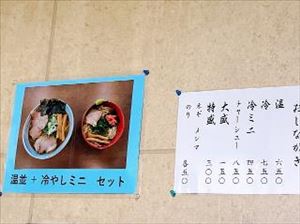 温並 + 冷やしミニ セット
おしながき
温 六五〇
冷 七五〇
冷ミニ 四五〇
トッチャーシュー 八五〇
大盛 一五〇
特盛 三〇〇
ネギ メンマ
のり 各五〇